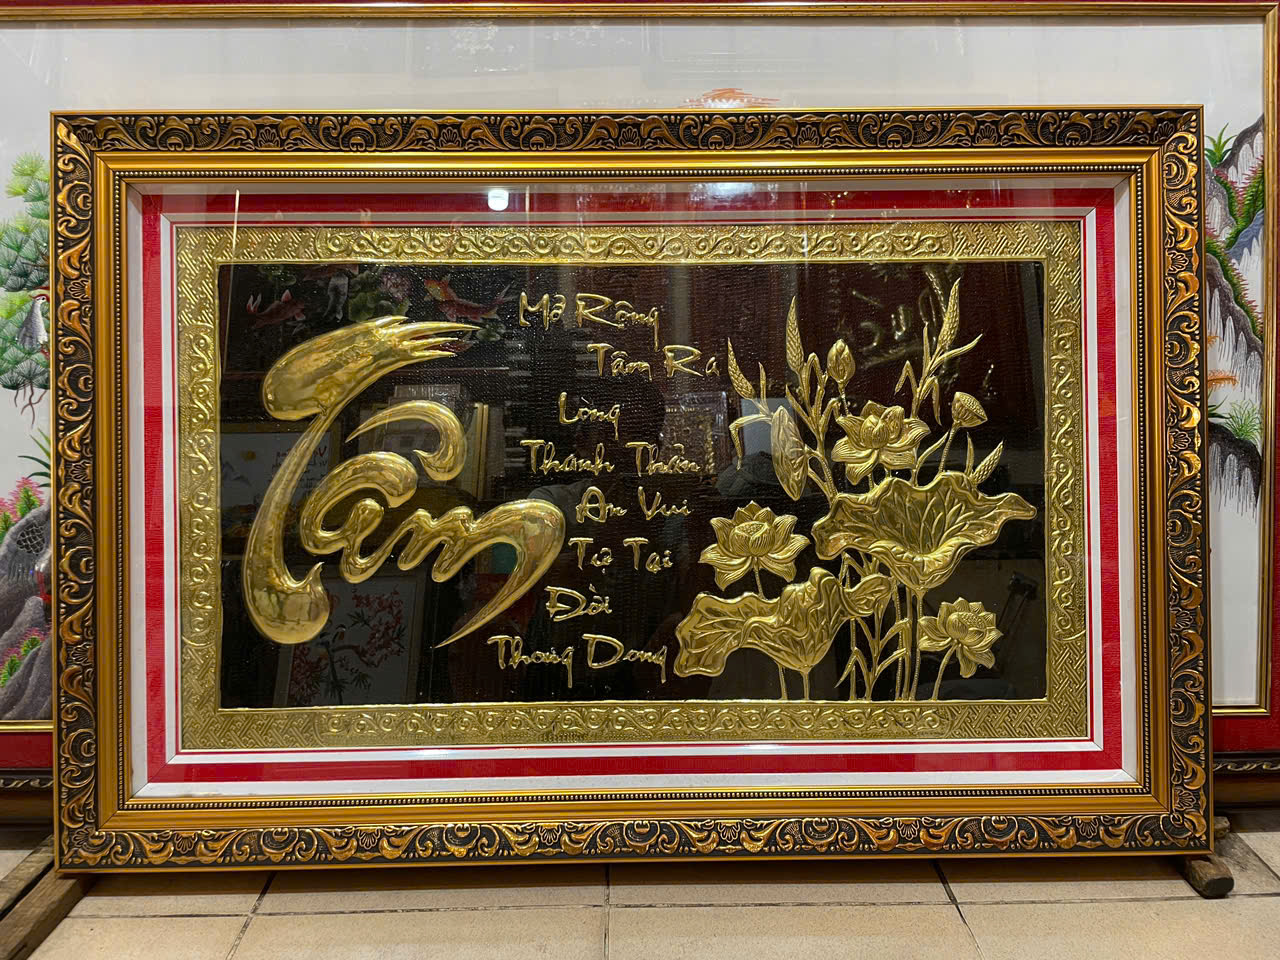 Tâm
Mở Rộng
Tâm Ra
Lòng
Thanh Thản
An Vui
Tự Tại
Đời
Thong Dong